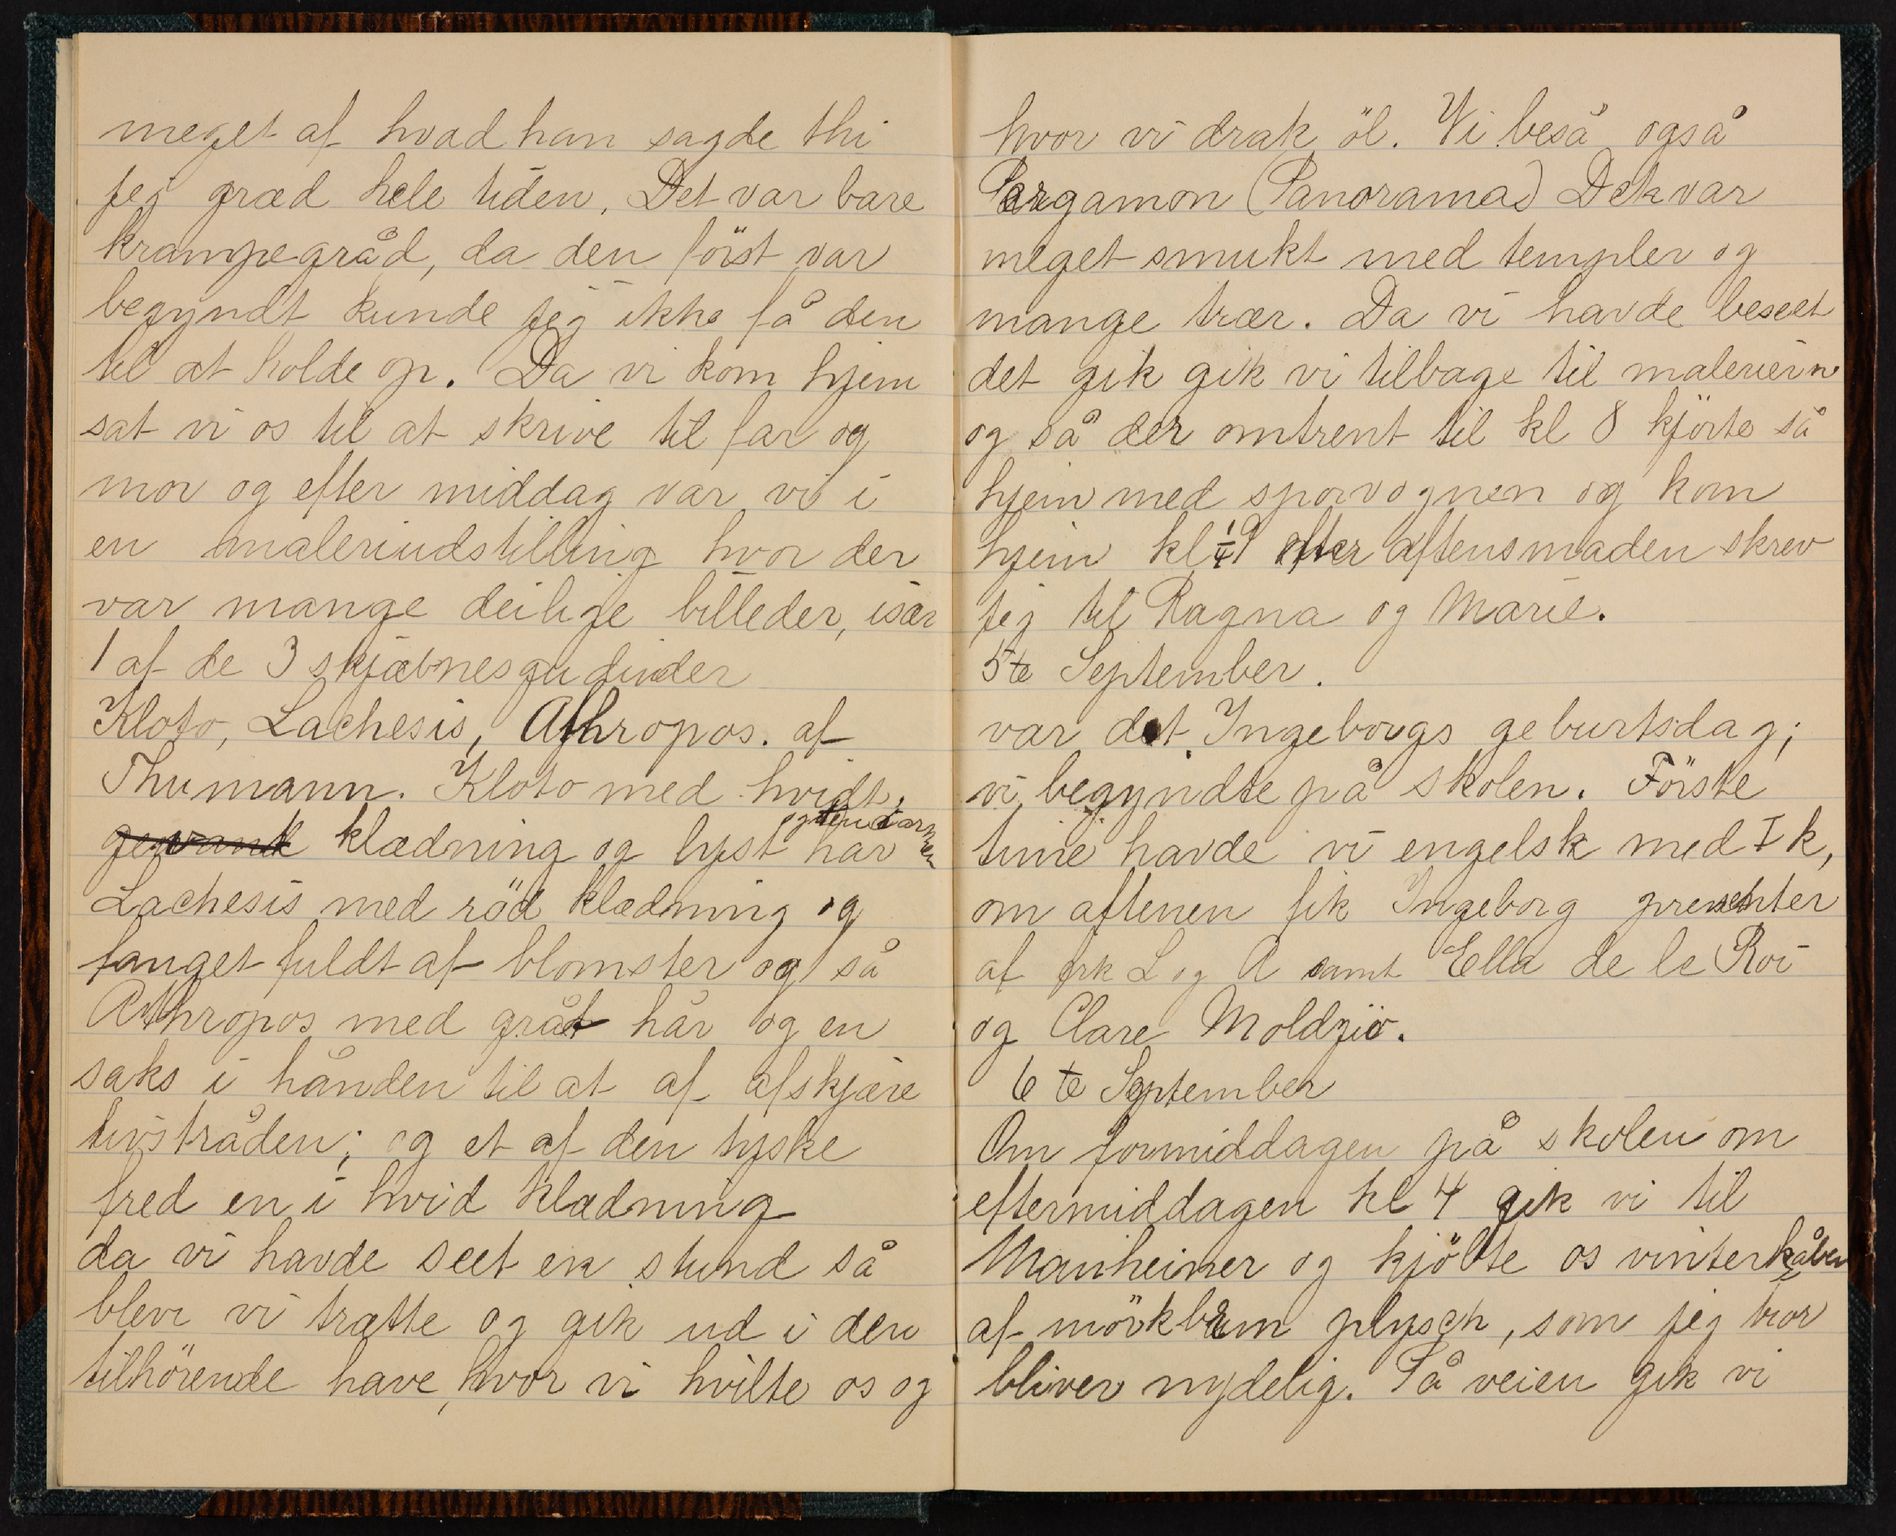 meget af hvad han sagde thi
jeg græd hele tiden. Det var bare
krampegråd, da den först var
begyndt kunde jeg ikke få den
til at holde op. Da vi kom hjem
sat vi os til at skrive til far og
mor og efter middag var vi i
en maleriudstilling hvor der
var mange deilige billeder, især
1 af de 3 skjæbnesgudinder
Kloto, Lachesis, Athropos. af
Thumann. Kloto med hvidt,
klædning og lyst hår
Lachesis med röd klædning og
fanget fuldt af blomster og så
Athropos med gråt hår og en
saks i hånden til at af afskjære
livstråden; og et af den tyske
fred en i hvid klædning
da vi havde seet en stund så
bleve vi trætte og gik ud i den
tilhörende have, hvor vi hvilte os og
hvor vi drak öl. Vi beså også
Pergamon (Panorama) Det var
meget smukt med templer og
mange trær. Da vi havde beseet
det gik gik vi tilbage til malerierne
og så der omtrent til kl 8 kjörte så
hjem med sporvognen og kom
hjem kl 1/4 9 efter aftensmaden skrev
jeg til Ragna og Marie.
5te September.
var det Ingeborgs geburtsdag;
vi begyndte på skolen. Förste
time havde vi engelsk med I k,
om aftenen fik Ingeborg presenter
af frk L og A samt Ella de le Roi
og Clare Moldzio.
6te September
Om formiddagen på skolen om
eftermiddagen kl 4 gik vi til
Manheimer og kjöbte os vinterkåber
af mörkbrun plysch, som jeg tror
bliver nydelig. På veien gik vi